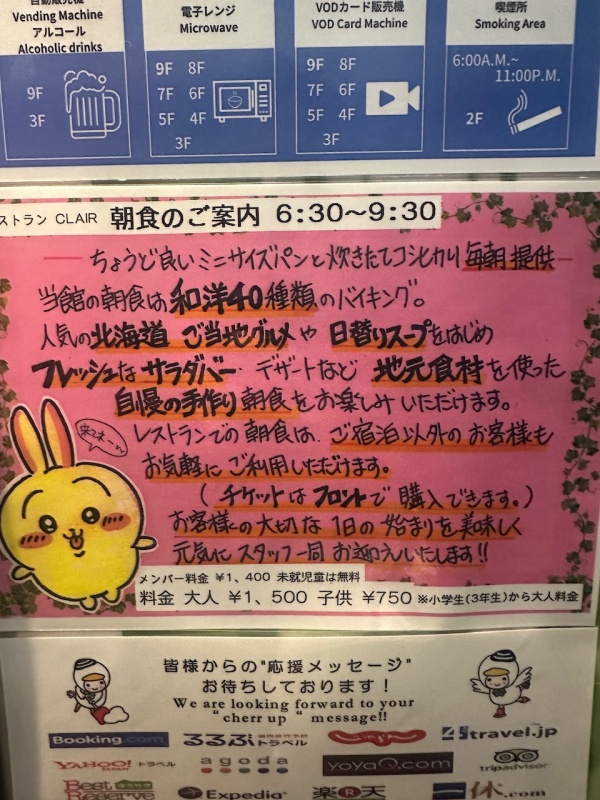 自動販売機
Vending Machine
アルコール
Alcoholic drinks
9F
3F
電子レンジ
Microwave
9F 8F
7F 6F
5F 4F
3F
VODカード販売機
VOD Card Machine
9F 8F
7F 6F
5F 4F
3F
喫煙所
Smoking Area
6:00A.M.~
11:00P.M.
2F
ストラン CLAIR 朝食のご案内 6:30～9:30
ちょうど良いミニサイズパンと炊きたてコシヒカリ毎朝提供
当館の朝食は和洋40種類のバイキング。
人気の北海道ご当地グルメや日替りスープをはじめ
フレッシュなサラダバー・デザートなど地元食材を使った
自慢の手作り朝食をお楽しみいただけます。
レストランでの朝食は、ご宿泊以外のお客様も
お気軽にご利用いただけます。
(チケットはフロントで購入できます。)
お客様の大切な1日の始まりを美味しく
元気にスタッフ一同お迎えいたします!!
メンバー料金 ¥1,400 未就児童は無料
料金 大人 ¥1,500 子供 ¥750 ※小学生(3年生)から大人料金
皆様からの"応援メッセージ"
お待ちしております！
We are looking forward to your
"cherr up" message!!
Booking.com
るるぶトラベル
じゃらん
4travel.jp
YAHOO! JAPAN トラベル
agoda
yoyaQ.com
tripadvisor
Best Reserve
Expedia
楽天
一休.com